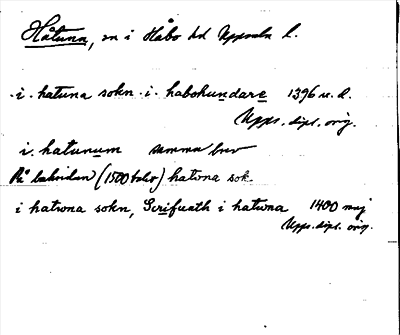 Håtuna, sn i Håbo hd Uppsala l.
i hatuna sokn i habohundare 1396 u.d.
Upps. dipl. orig.
i hatunum samma brev
På baksidan (1500talet) hatwna sok.
i hatwna sokn, i hatwna 1400
Upps. dipl. orig.